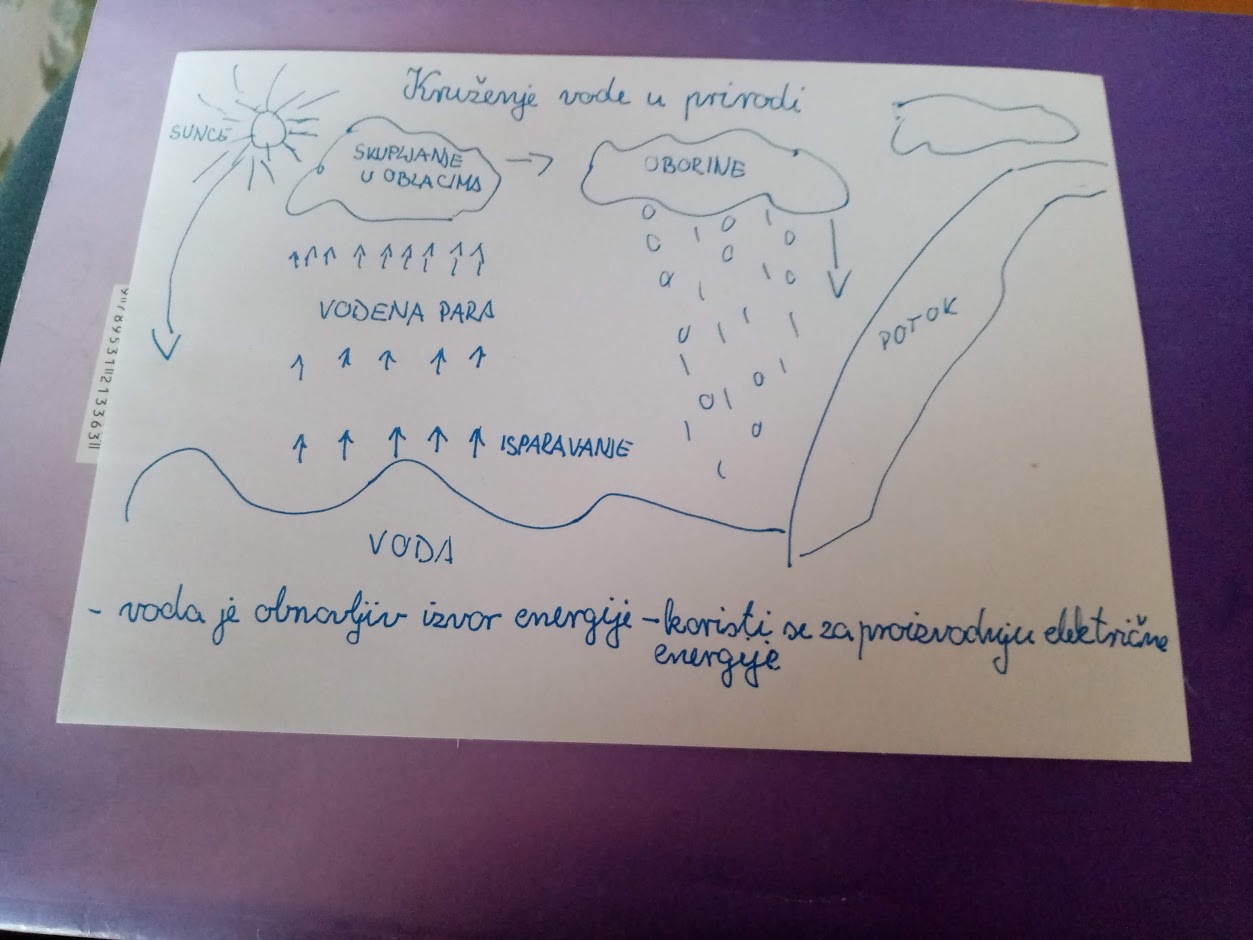 Kruženje vode u prirodi
SUNCE
SKUPLJANJE
U OBLACIMA
OBORINE
VODENA PARA
POTOK
ISPARAVANJE
VODA
- voda je obnovljiv izvor energije - koristi se za proizvodnju električne
energije